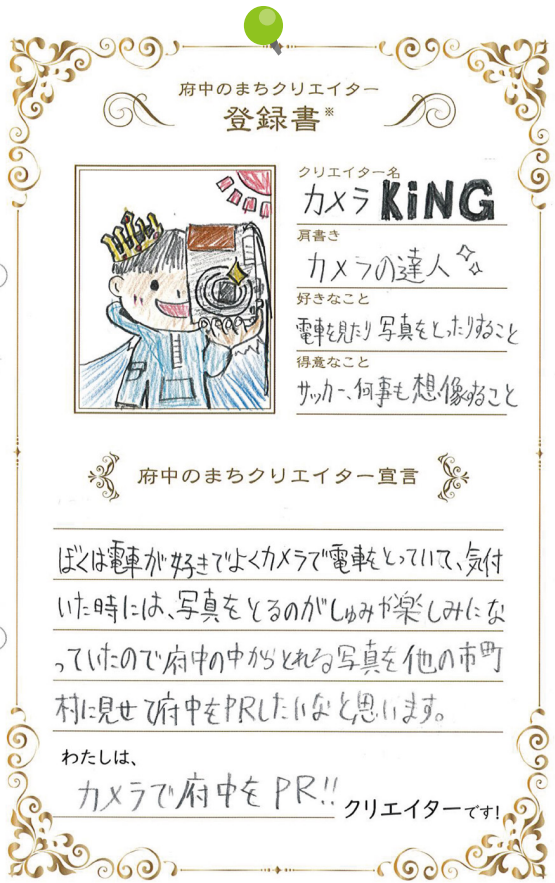 府中のまちクリエイター
登録書※
クリエイター名
カメラKiNG
肩書き
カメラの達人
好きなこと
電車を見たり写真をとったりすること
得意なこと
サッカー、何事も想像すること
府中のまちクリエイター宣言
ぼくは電車が好きでよくカメラで電車をとっていて、気付
いた時には、写真をとるのがしゅみや楽しみにな
っていたので府中の中からとれる写真を他の市町
村に見せて府中をPRしたいなと思います。
わたしは、
カメラで府中をPR!!
クリエイターです!